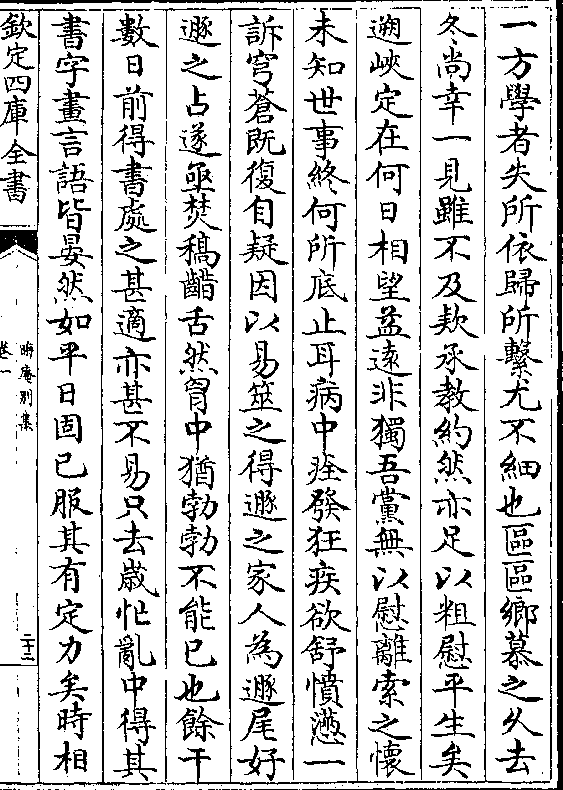 一方學者失所依歸所繫尤不細也區區鄉慕之乆去
冬尚幸一見雖不及欵承教約然亦足以粗慰平生矣
遡峽定在何日相望益遠非獨吾黨無以慰離索之懷
未知世事終何所底止耳病中痊發狂疾欲舒憤懣一
訴穹蒼既復自疑因以易筮之得遯之家人為遯尾好
遯之占遂亟焚稿齰舌然胷中猶勃勃不能已也餘干
數日前得書處之甚適亦甚不易只去歲忙亂中得其
書字畫言語皆晏然如平日固已服其有定力矣時相
欽定四庫全書
晦庵别集
卷一
二十二